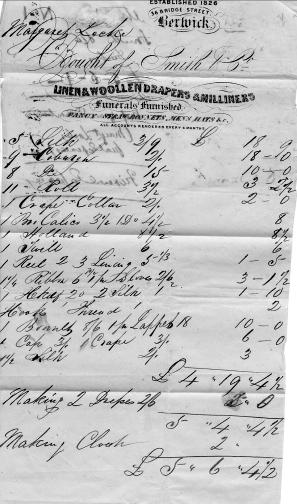 ESTABLISHED 1826
36 BRIDGE STREET
Berwick
Margaret Locke
Bought of Smith & Co.
LINEN & WOOLLEN DRAPERS & MILLINERS
Funerals Furnished
FANCY STRAW BONNETS, MENS HATS &c.
ALL ACCOUNTS RENDERED EVERY 6 MONTHS
5 Silk 3/9 £ 18 - 9
9 Cobourg 2/- 18 - 0
8 Do 1/3 10 - 0
11 Roll 3½ 3 - 2½
1 Crape Collar 2/- 2 - 0
Calico 3½ 1 Do 4½ 8
1 Holland 8½
1 Twill 6 6
1 Reel 2 3 Lining 5 - 1/3 1 - 5
Ribbon 1 Gloves 2/6 3 - 1½
20 - 2 Silk 1 1 - 10
Hooks Thread 2
1 Bonnet 8/6 1 Lappet 18 10 - 0
Cap 3/- Crape 3/- 6 - 0
Silk 2/- 3
£ 4 " 19 " 4½
Making 2 Dresses 2/6 5 " 0
5 " 4 " 4½
Making Cloak 2 "
£ 5 " 6 " 4½